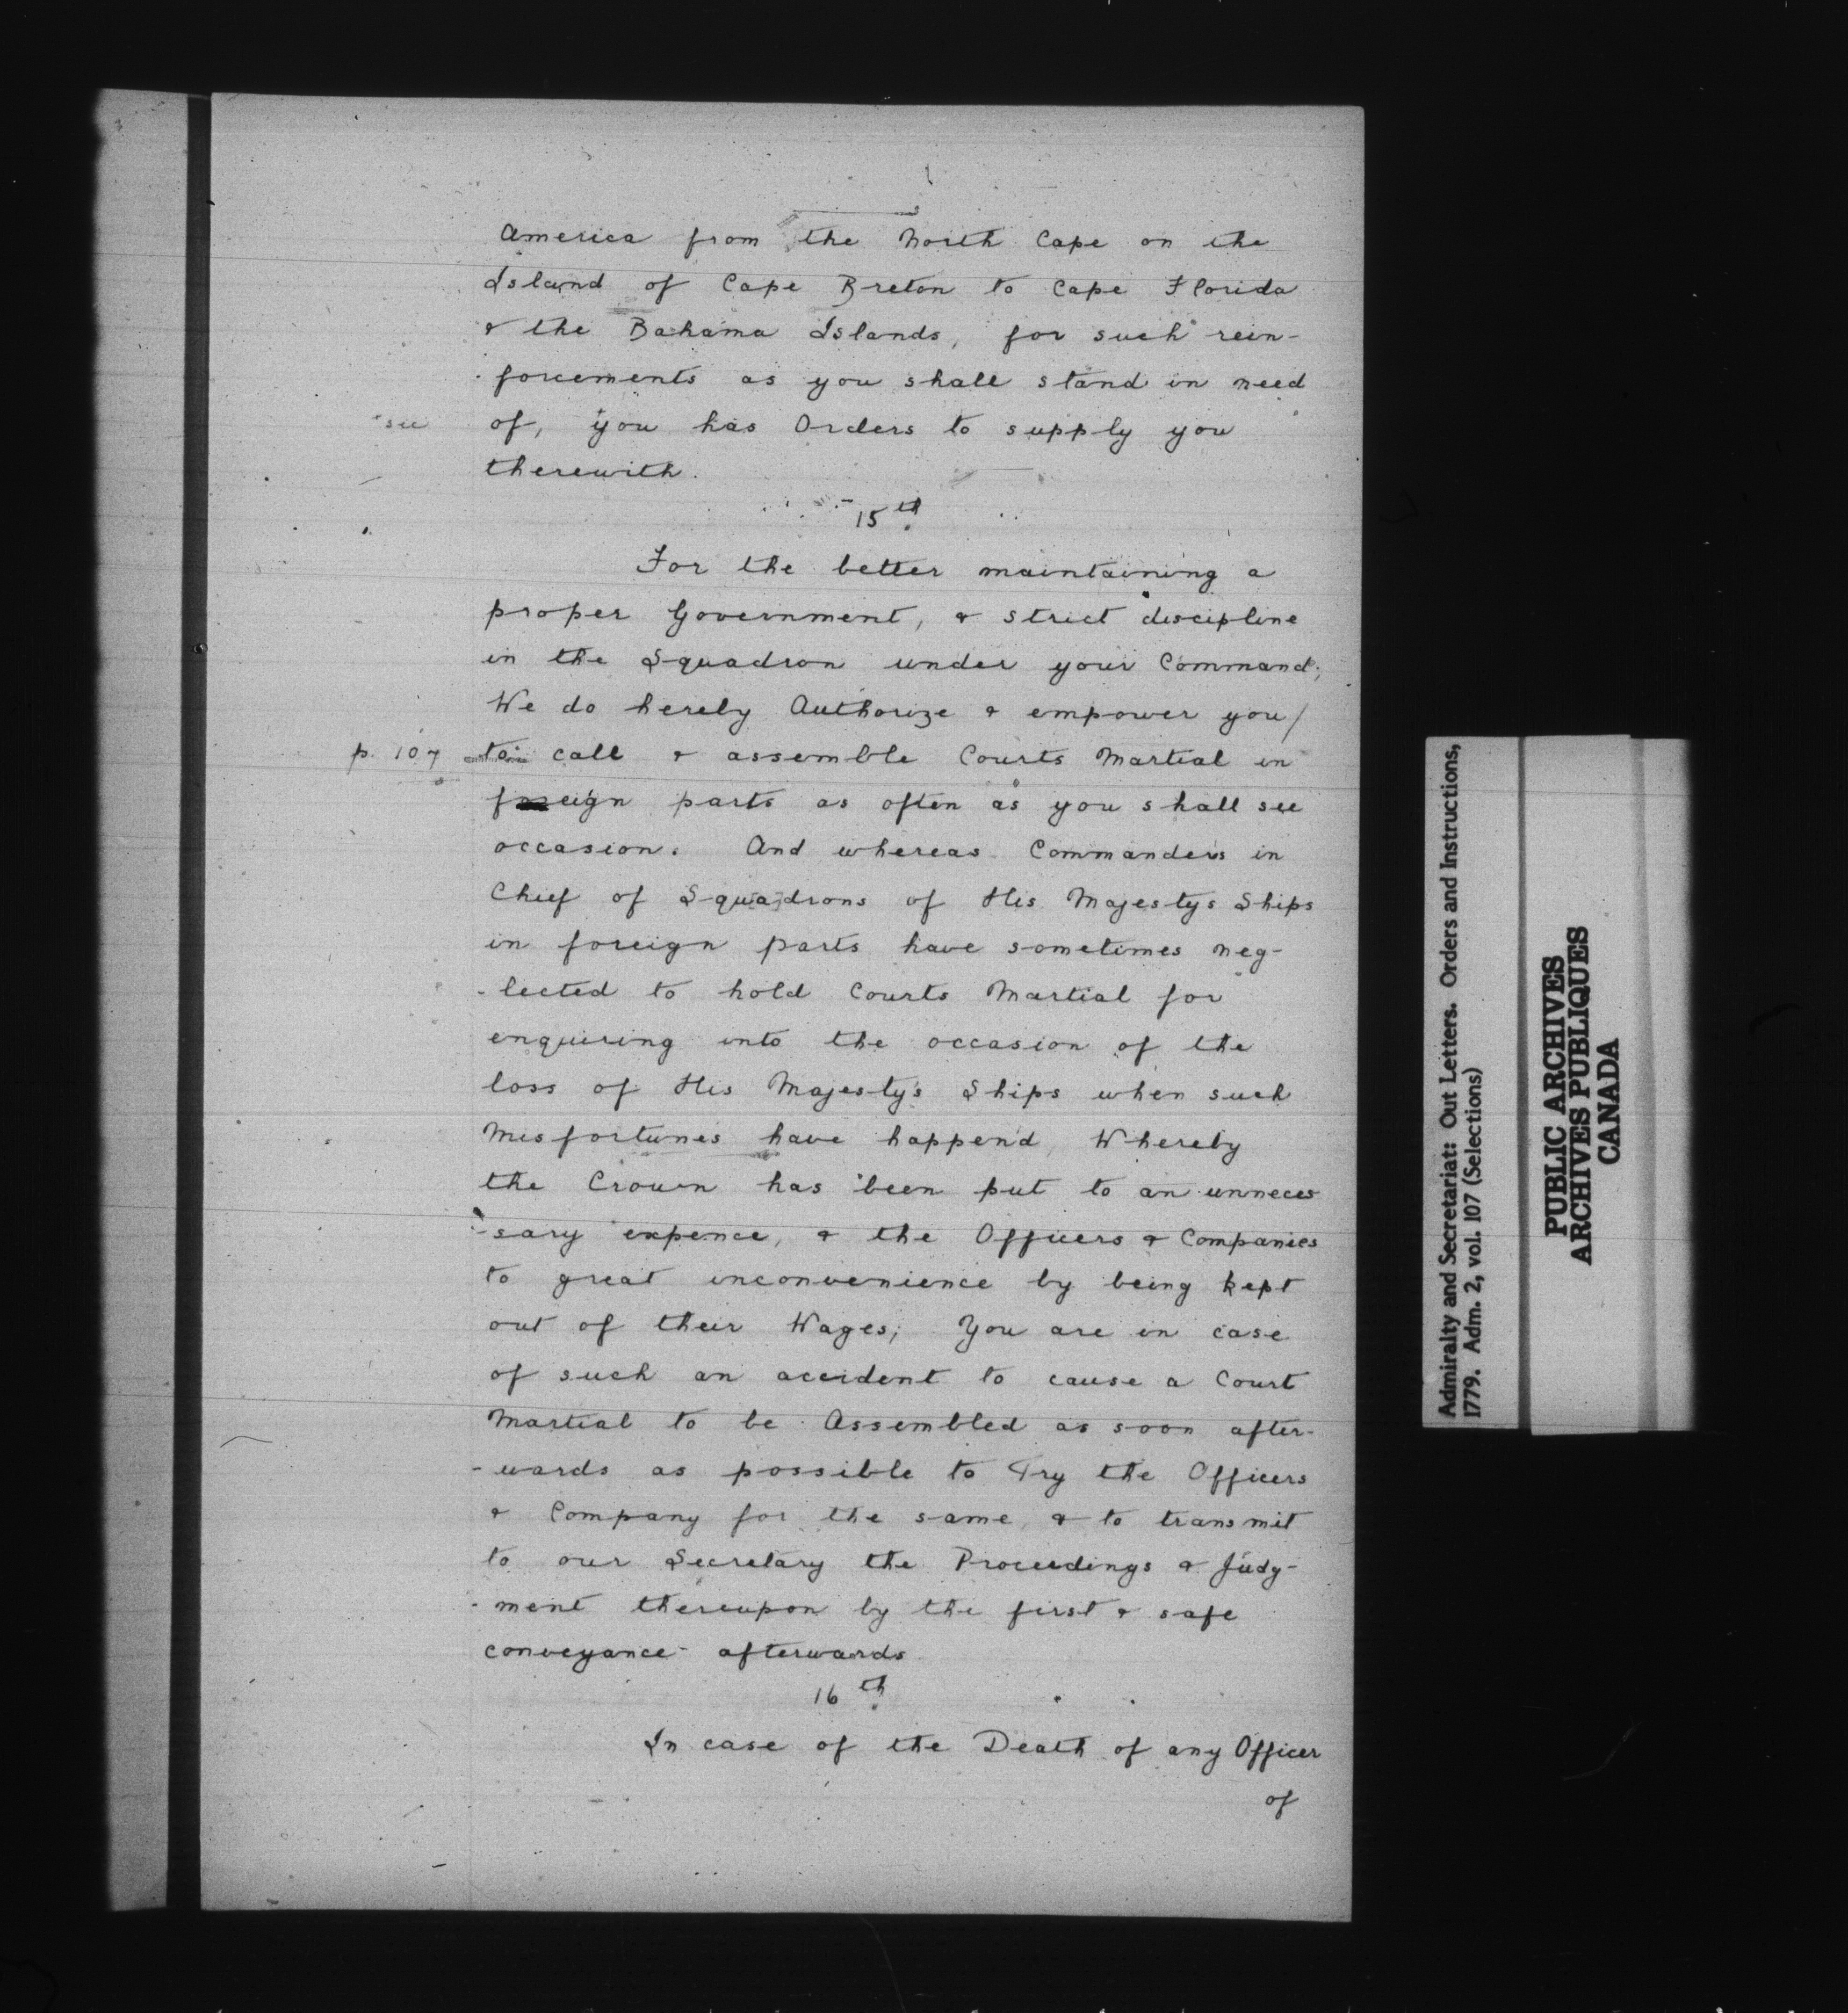 America from the North Cape on the
Island of Cape Breton to Cape Florida
& the Bahama Islands, for such rein-
-forcements as you shall stand in need
"see of, you has Orders to supply you
therewith.
15th
For the better maintaining a
proper Government, & strict discipline
in the Squadron under your Command;
We do hereby Authorize & empower you/
p. 107 to call & assemble Courts Martial in
foreign parts as often as you shall see
occasion. And whereas Commanders in
Chief of Squadrons of His Majestys Ships
in foreign parts have sometimes neg-
-lected to hold Courts Martial for
enquiring into the occasion of the
loss of His Majesty's Ships when such
Misfortunes have happend, Whereby
the Crown has been put to an unneces
-sary expence, & the Officers & Companies
to great inconvenience by being kept
out of their Wages; You are in case
of such an accident to cause a Court
Martial to be Assembled as soon after-
-wards as possible to Try the Officers
& Company for the same, & to transmit
to our Secretary the Proceedings & Judg-
-ment thereupon by the first & safe
conveyance afterwards.
16th
In case of the Death of any Officer
of
Admiralty and Secretariat: Out Letters. Orders and Instructions,
1779. Adm. 2, vol. 107 (Selections)
PUBLIC ARCHIVES
ARCHIVES PUBLIQUES
CANADA